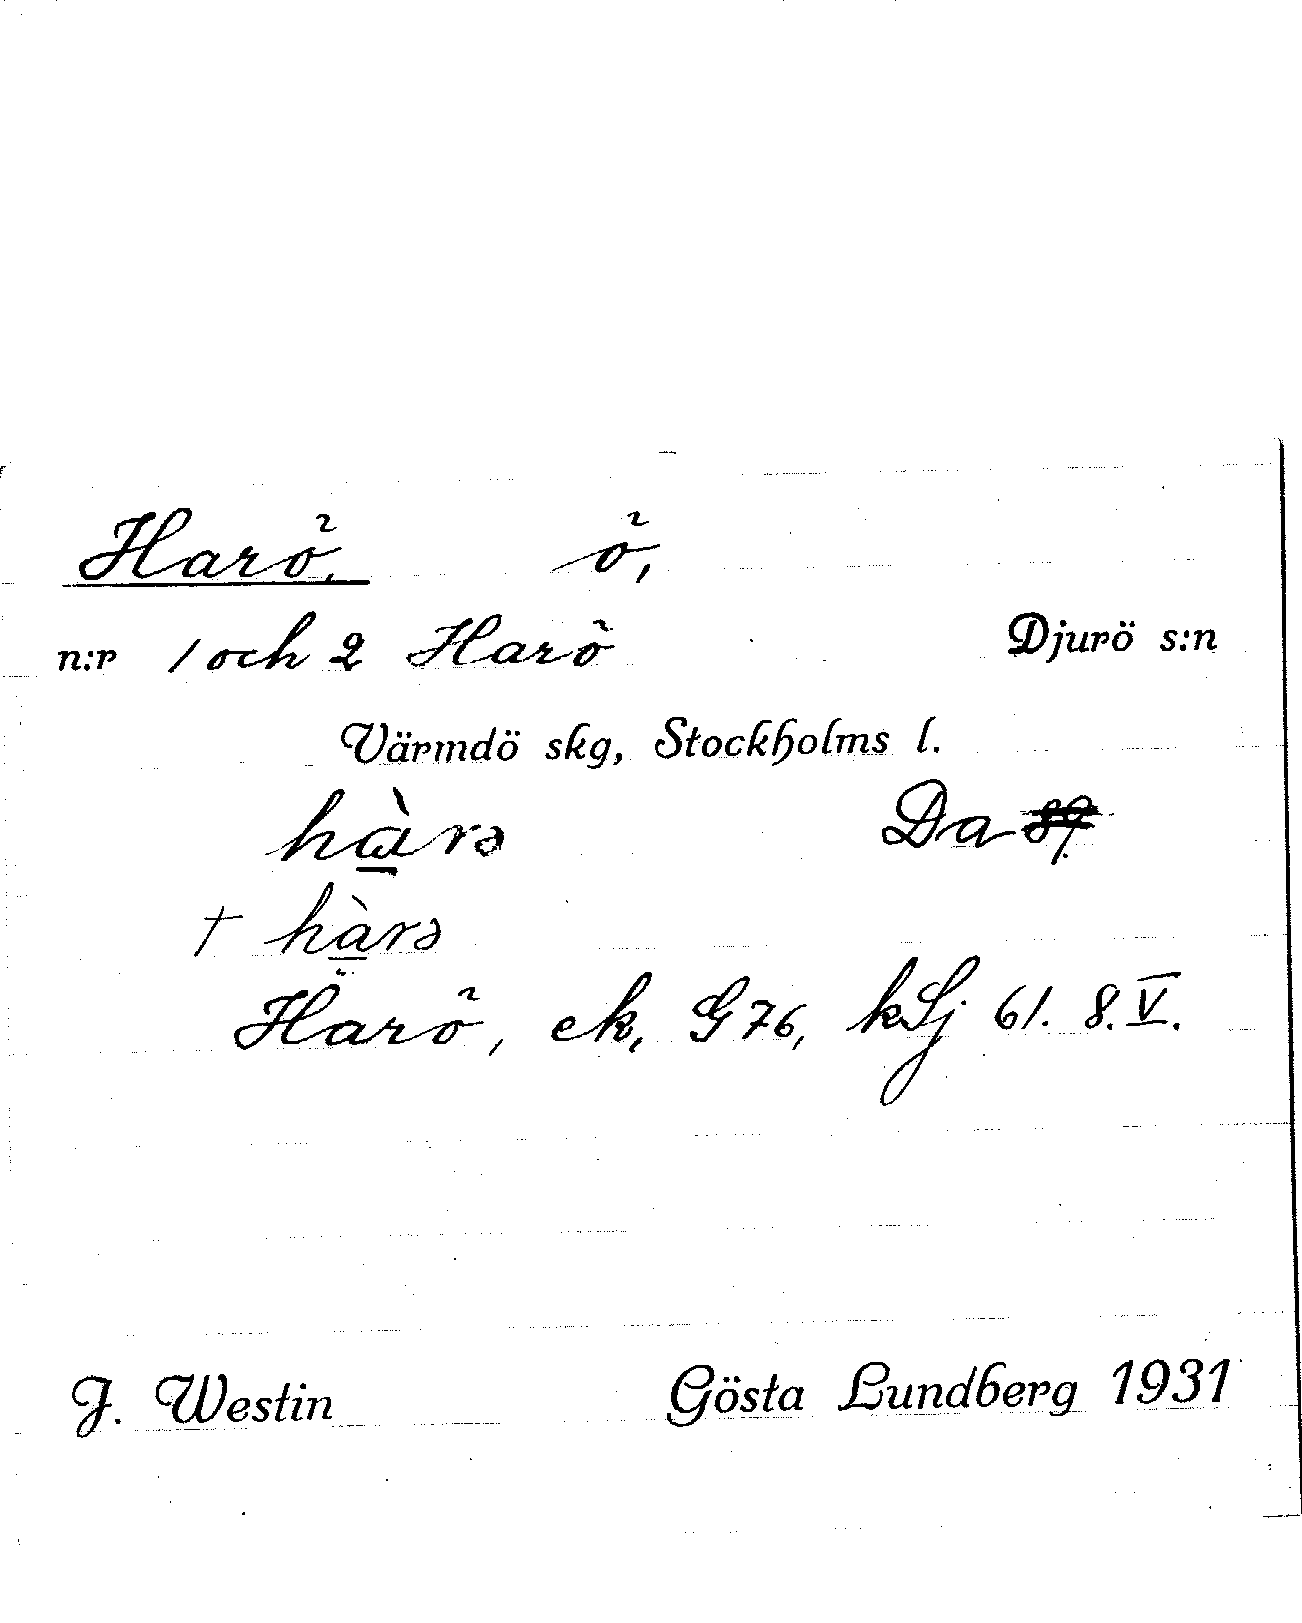 Harö, ö,
n:r 1 och 2 Harö Djurö s:n
Värmdö skg, Stockholms l.
hàrə Da
† hàrə
Harö, ek, G 76, kLj 61. 8. V.
J. Westin Gösta Lundberg 1931